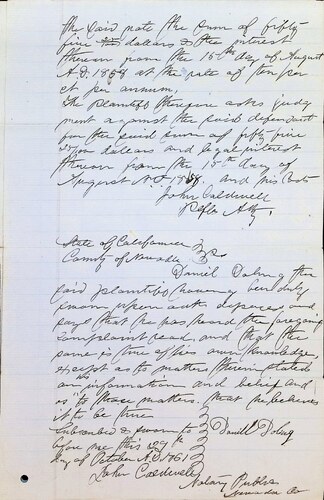 the said note the sum of fifty
five dollars & the interest
thereon from the 15th day of August
A.D. 1858 at the rate of ten per
ct per annum.
The Plaintiff therefore asks judg
ment against the said defendant
for the said sum of fifty five
dollars and legal interest
thereon from the 15th day of
August A.D. 1858, and his costs
John Caldwell
Plffs Atty.
State of California
County of Nevada
Daniel Dolug the
said plaintiff having been duly
sworn upon oath deposes and
says that he has heard the foregoing
complaint read, and that the
same is true of his own knowledge,
except as to matters therein stated
on his information and belief and
as to those matters that he believes
it to be true
Subscribed & sworn to
before me this 29th
day of October A.D. 1861
Daniel Dolug
John Caldwell
Notary Public
Nevada Co